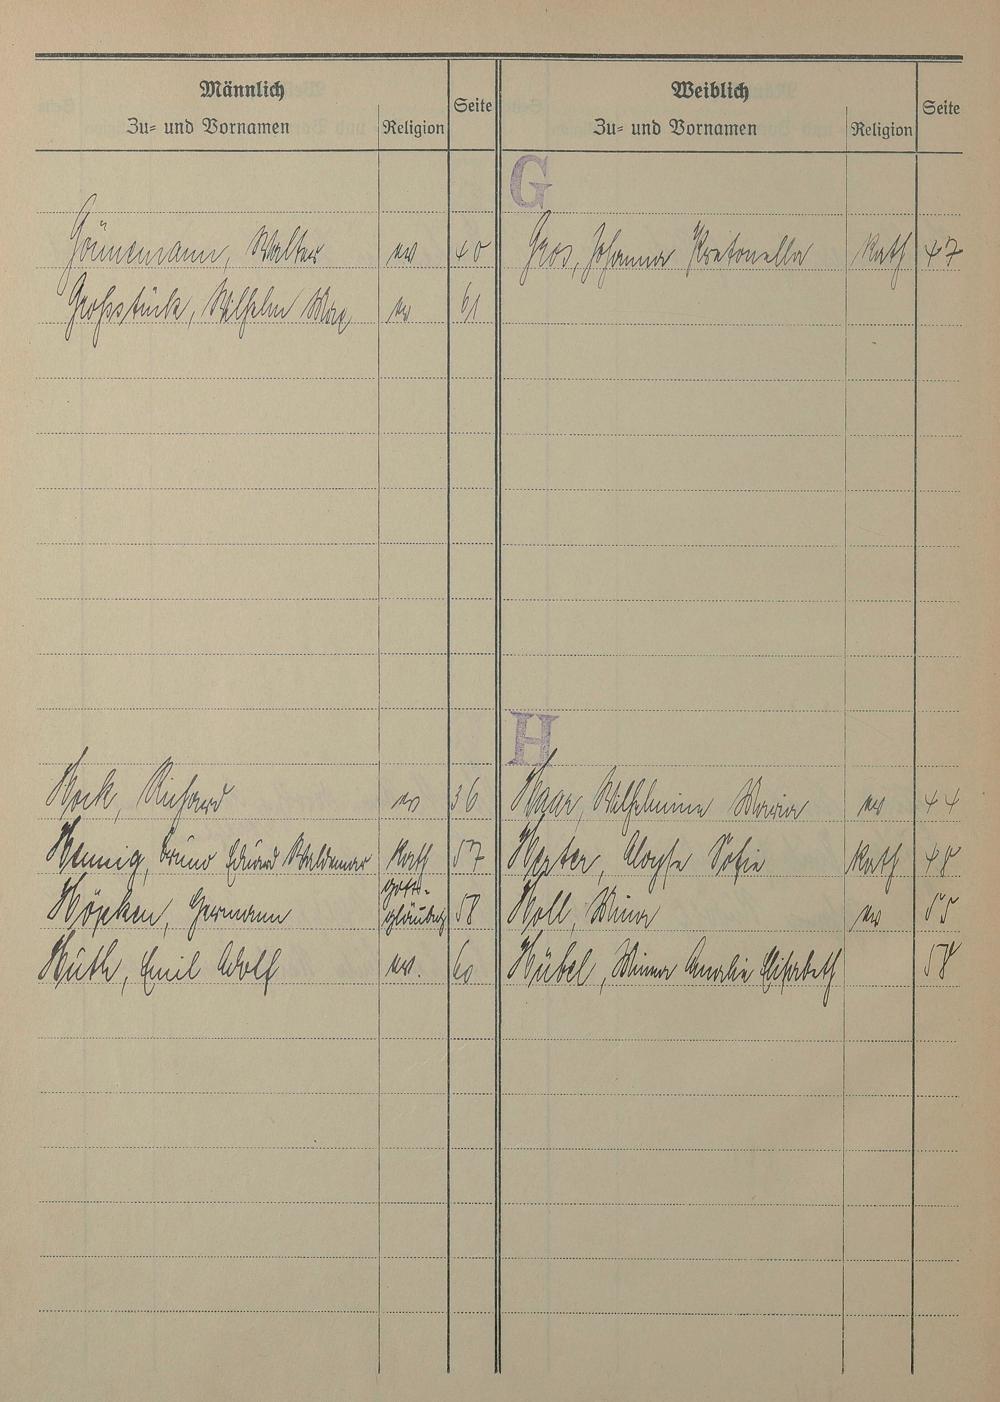 Männlich
Zu- und Vornamen
Religion
Seite
Weiblich
Zu- und Vornamen
Religion
Seite
G
Gönnemann, Walter ev 40
Gros, Johanna Kath 47
Großstück, Wilhelm Max ev 61
H
Hock, Richard ev 36
Haar, Wilhelmine Maria ev 44
Hennig, Bruno Eduard Waldemar Kath 57
Herter, Aloyse Sofie Kath 48
gott-
Höpken, Hermann gläubig 58
Holl, Minna ev 55
Huth, Emil Adolf ev. 60
Hübel, Minna Amalie Elisabeth 58